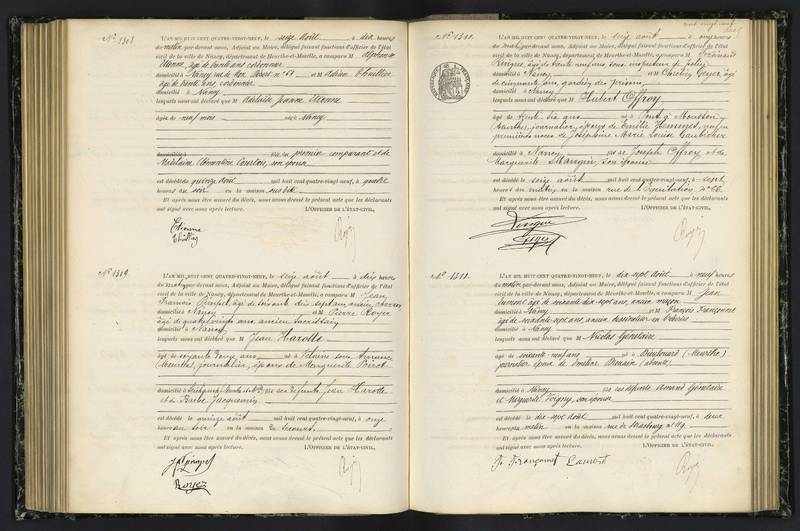 N° 1308
L'AN MIL HUIT CENT QUATRE-VINGT-NEUF, le seize Août à dix heures
du matin par-devant nous, Adjoint au Maire, délégué faisant fonctions d'officier de l'état
civil de la ville de Nancy, département de Meurthe-et-Moselle, a comparu M
Etienne, âgé de trente ans, cordonnier
domicilié à Nancy, rue et M Adrien Thuillier
âgé de trente ans, cordonnier
domicilié à Nancy
lesquels nous ont déclaré que M Adélaïde Jeanne Etienne
âgée de neuf mois née à Nancy
domiciliée à fille du premier comparant et de
Madelaine Clémentine Courtois, son épouse
est décédée quinze Août mil huit cent quatre-vingt-neuf, à quatre
heures du soir en la maison sus dite
Et après nous être assuré du décès, nous avons dressé le présent acte que les déclarants
ont signé avec nous après lecture. L'OFFICIER DE L'ÉTAT-CIVIL,
Etienne
Thuillier
N° 1309
L'AN MIL HUIT CENT QUATRE-VINGT-NEUF, le seize août à dix heures
du matin par-devant nous, Adjoint au Maire, délégué faisant fonctions d'officier de l'état
civil de la ville de Nancy, département de Meurthe-et-Moselle, a comparu M Jean
François âgé de soixante dix sept ans, ancien
domicilié à Nancy et M Pierre Royer
âgé de ans, ancien sacristain
domicilié à Nancy
lesquels nous ont déclaré que M Jean Harotte
âgé de soixante onze ans né à Velaine sous Amance
(Meurthe), journalier, époux de Marguerite Poirot
domicilié à fils de défunts Jean Harotte
et de Barbe Jacquemin
est décédé le quinze août mil huit cent quatre-vingt-neuf, à onze
heures du soir en la maison de secours.
Et après nous être assuré du décès, nous avons dressé le présent acte que les déclarants
ont signé avec nous après lecture. L'OFFICIER DE L'ÉTAT-CIVIL,
Royer
N° 1310
L'AN MIL HUIT CENT QUATRE-VINGT-NEUF, le seize août à onze heures
du matin par-devant nous, Adjoint au Maire, délégué faisant fonctions d'officier de l'état
civil de la ville de Nancy, département de Meurthe-et-Moselle, a comparu M Ferdinand
âgé de trente neuf ans, sous inspecteur de police
domicilié à Nancy et M Charles Geyer, âgé
de cinquante ans, gardien des prisons
domicilié à Nancy
lesquels nous ont déclaré que M Hubert Offroy
âgé de trente six ans né à Pont à Mousson
(Meurthe), journalier, époux de Emélie veuf en
premières noces de Joséphine Marie Louise
domicilié à Nancy fils de Joseph Offroy et de
Marguerite Mangin, son épouse
est décédé le seize août mil huit cent quatre-vingt-neuf, à sept
heures du matin en la maison rue de l'Equitation n° 26.
Et après nous être assuré du décès, nous avons dressé le présent acte que les déclarants
ont signé avec nous après lecture. L'OFFICIER DE L'ÉTAT-CIVIL,
Geyer
N° 1311
L'AN MIL HUIT CENT QUATRE-VINGT-NEUF, le dix-sept Août à neuf heures
du matin par-devant nous, Adjoint au Maire, délégué faisant fonctions d'officier de l'état
civil de la ville de Nancy, département de Meurthe-et-Moselle, a comparu M Jean
Laurent âgé de soixante dix sept ans, ancien maçon
domicilié à Nancy et M François Françonnet
âgé de soixante sept ans, ancien
domicilié à Nancy
lesquels nous ont déclaré que M Nicolas Génetaire
âgé de soixante neuf ans né à Dieulouard (Meurthe)
époux de
domicilié à Nancy fils des défunts Amand Génetaire
et Marguerite Voigny, son épouse
est décédé le dix sept Août mil huit cent quatre-vingt-neuf, à deux
heures du matin en la maison rue de Strasbourg n° 119.
Et après nous être assuré du décès, nous avons dressé le présent acte que les déclarants
ont signé avec nous après lecture. L'OFFICIER DE L'ÉTAT-CIVIL,
F. Françonnet Laurent